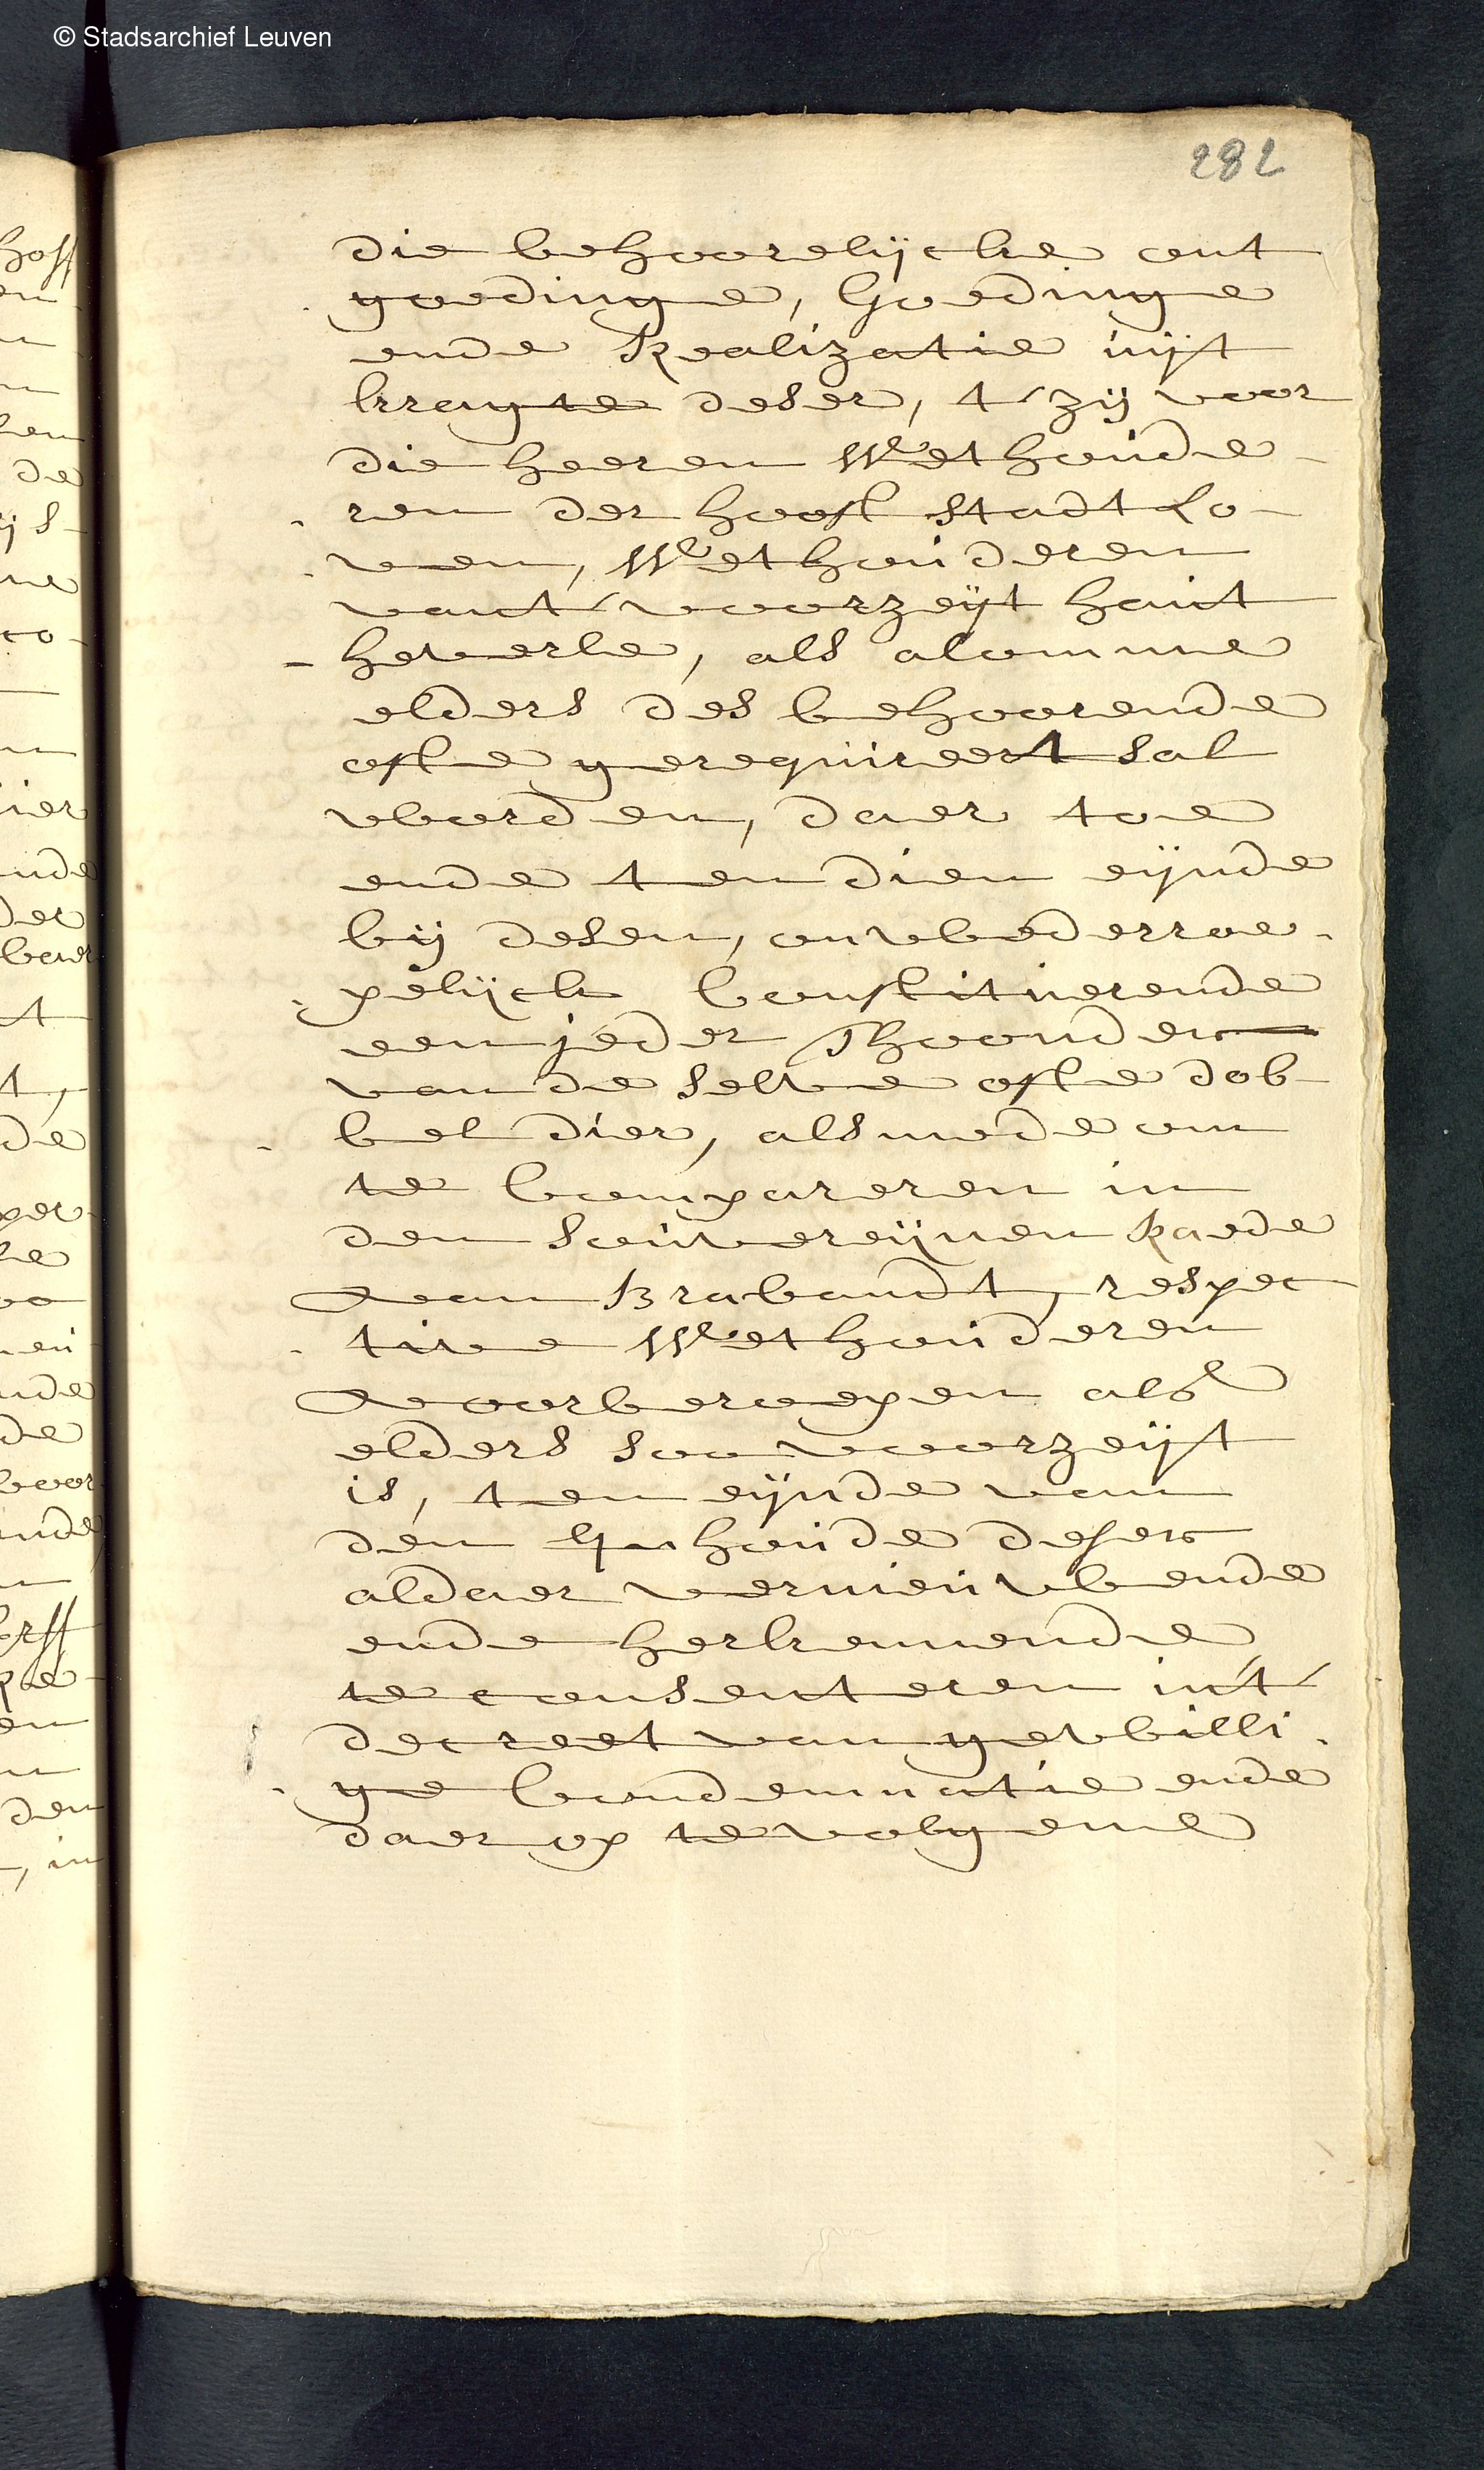 © Stadsarchief Leuven
282
die behoorelijcke ont
goedinge, Goedinge
ende Realizatie uijt
krragte deser, t'zij voor
die heeren Wethoúde-
ren der hooft Stadt Lo-
ven, Wethoúderen
vant' voorzeijt haút
heverle, als alomme
elders des behoorende
ofte gerequireert sal
worden, daer toe
ende ten dien eijnde
bij desen, onwederroe-
pelijck Constitúerende
een jeder Thoonder
van de selve ofte dob-
bel dier, als mede om
te Compareren in
den Soúvereijnen Raede
van Brabandt, respec
tive Wethoúderen
voorberoepen als
elders soo voorzeijt
is, ten eijnde van
den Inhoúde deser
aldaer vernieúwende
ende herkennende
te consenteren int'
decreet van gewilli-
ge Condemnatie ende
daer op te volgene